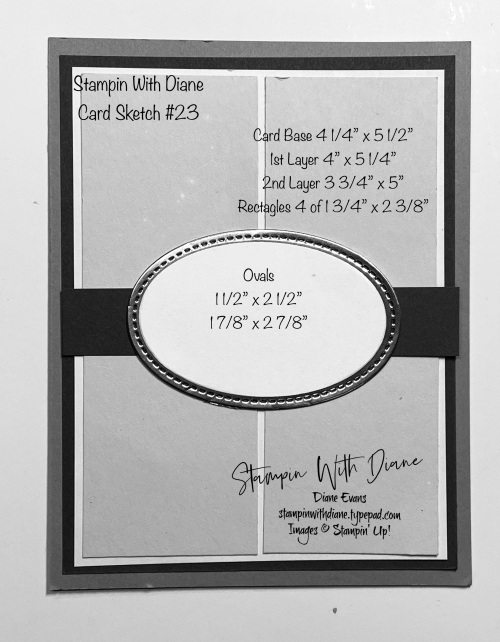 Stampin With Diane
Card Sketch #23
Card Base 4 1/4" x 5 1/2"
1st Layer 4" x 5 1/4"
2nd Layer 3 3/4" x 5"
Rectagles 4 of 1 3/4" x 2 3/8"
Ovals
1 1/2" x 2 1/2"
1 7/8" x 2 7/8"
Stampin With Diane
Diane Evans
stampinwithdiane.typepad.com
Images © Stampin' Up!